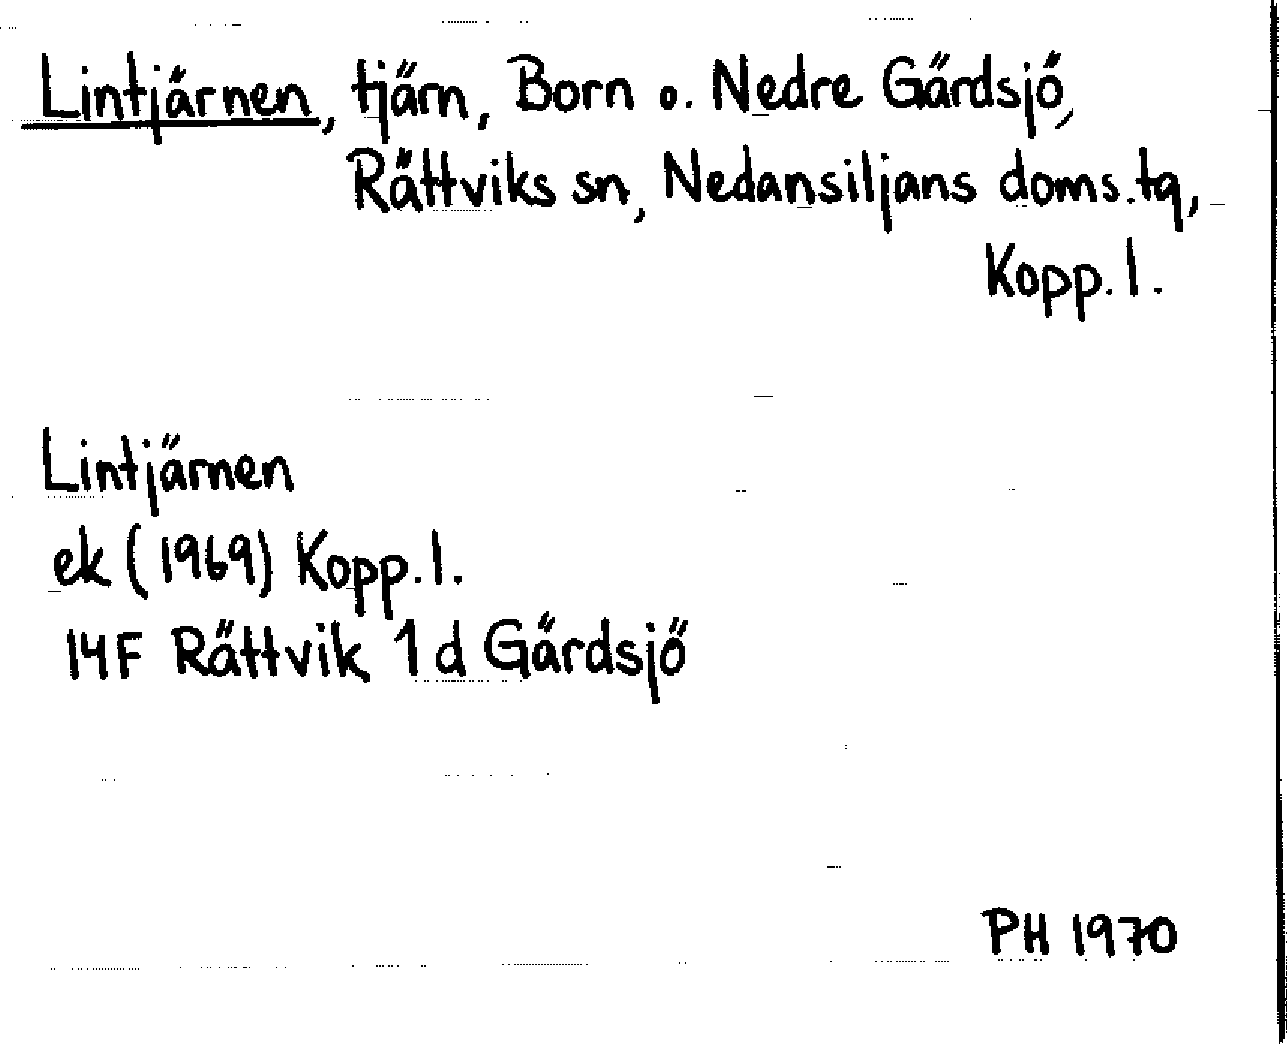 Lintjärnen, tjärn, Born o. Nedre Gärdsjö,
Rättviks sn, Nedansiljans doms.tg,
Kopp. l.
Lintjärnen
ek (1969) Kopp. l.
14F Rättvik 1d Gärdsjö
PH 1970